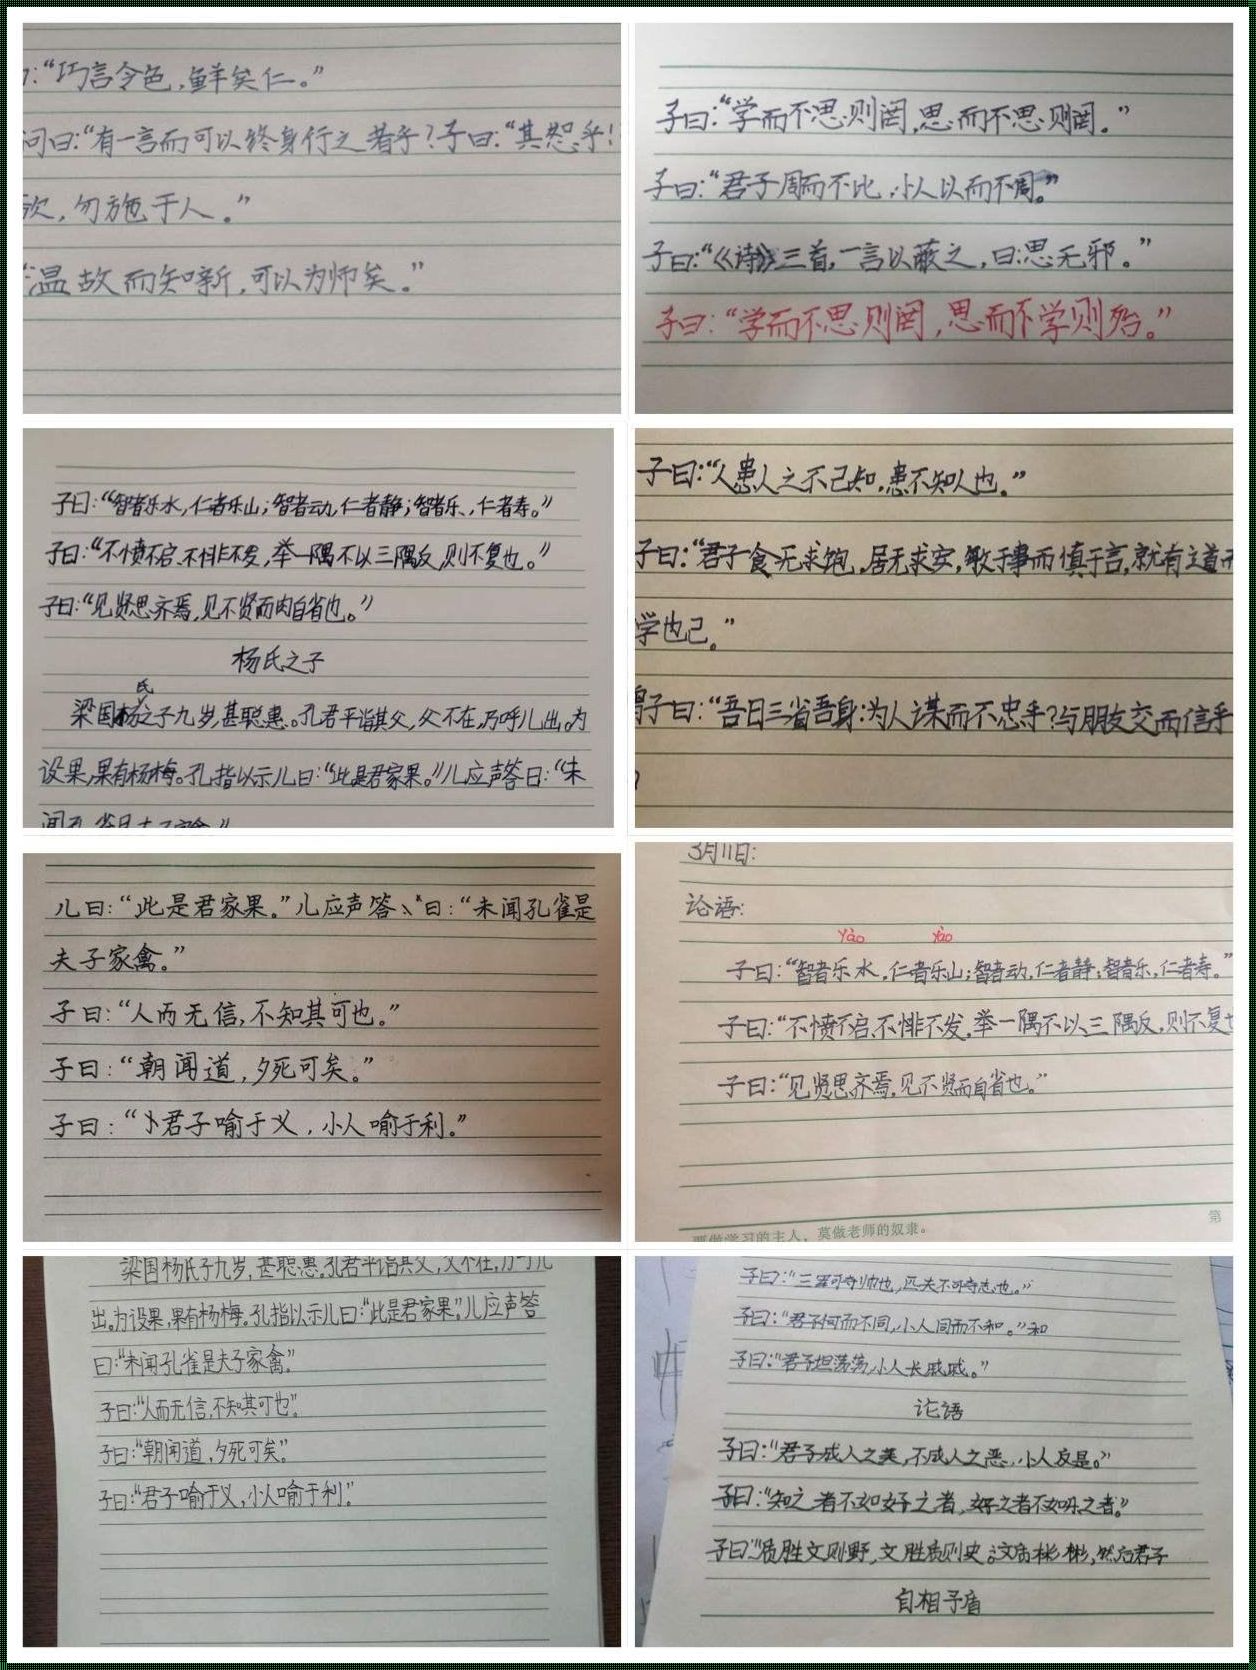 :“巧言令色，鲜矣仁。”
问曰：“有一言而可以终身行之者乎？子曰：“其恕乎！
欲，勿施于人。”
“温故而知新，可以为师矣。”
子曰：“学而不思则罔，思而不思则罔。”
子曰：“君子周而不比，小人以而不周。”
子曰：“《诗》三首，一言以蔽之，曰：思无邪。”
子曰：“学而不思则罔，思而不学则殆。”
子曰：“智者乐水，仁者乐山；智者动，仁者静；智者乐，仁者寿。”
子曰：“不愤不启，不悱不发，举一隅不以三隅反，则不复也。”
子曰：“见贤思齐焉，见不贤而内自省也。”
杨氏之子
氏
梁国杨之子九岁，甚聪惠。孔君平诣其父，父不在，乃呼儿出。为
设果，果有杨梅。孔指以示儿曰：“此是君家果。”儿应声答曰：“未
子曰：“人患人之不己知，患不知人也。”
子曰：“君子食无求饱，居无求安，敏于事而慎于言，就有道而
学也己。”
子曰：“吾日三省吾身：为人谋而不忠乎？与朋友交而信乎
儿曰：“此是君家果。”儿应声答、“曰：“未闻孔雀是
夫子家禽。”
子曰：“人而无信，不知其可也。”
子曰：“朝闻道，夕死可矣。”
子曰：“君子喻于义，小人喻于利。”
3月11日：
论语：
yào yào
子曰：“智者乐水，仁者乐山；智者动，仁者静；智者乐，仁者寿。”
子曰：“不愤不启，不悱不发，举一隅不以三隅反，则不复也
子曰：“见贤思齐焉，见不贤而自省也。”
要做学习的主人，莫做老师的奴隶。
第
梁国杨氏子九岁，甚聪惠。孔君平诣其父，父不在，乃呼儿
出。为设果，果有杨梅。孔指以示儿曰：“此是君家果。”儿应声答
曰：“未闻孔雀是夫子家禽。”
子曰：“人而无信，不知其可也”。
子曰：“朝闻道，夕死可矣”
子曰：“君子喻于义，小人喻于利”。
子曰：“三军可夺帅也，匹夫不可夺志也。”
子曰：“君子何而不同，小人同而不和。”和
子曰：“君子坦荡荡，小人长戚戚。”
论语
子曰：“君子成人之美，不成人之恶，小人反是。”
子曰：“知之者不如好之者，好之者不如乐之者。”
子曰：“质胜文则野，文胜质则史。文质彬彬，然后君子
自相矛盾